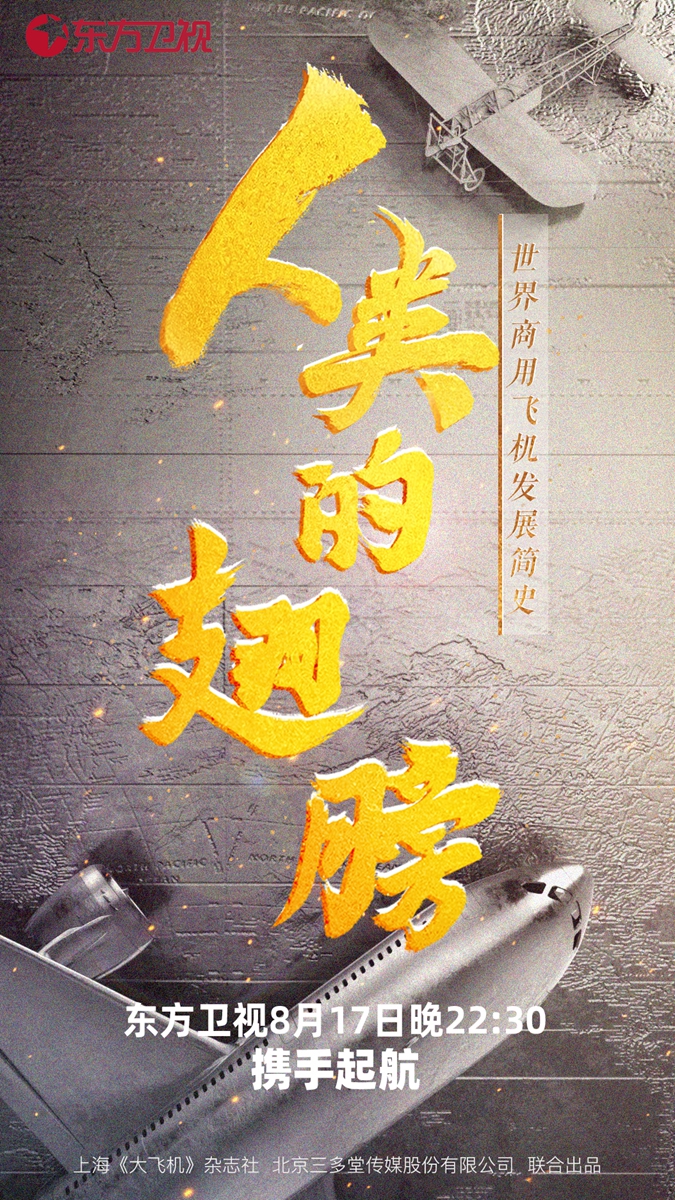 东方卫视
人类的翅膀
世界商用飞机发展简史
NORTH PACIFIC OC
NORTH PACIFIC
NORTH
东方卫视8月17日晚22:30
携手起航
上海《大飞机》杂志社 北京三多堂传媒股份有限公司 联合出品